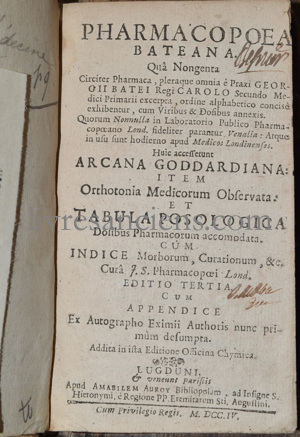 PHARMACOPOEA
BATEANA
Quâ Nongenta
Circiter Pharmaca, pleraque omnia è Praxi GEOR-
GII BATEI Regi CAROLO Secundo Me-
dici Primarii excerpta, ordine alphabetico concisè
exhibentur, cum Viribus & Dosibus annexis.
Quorum Nonnulla in Laboratorio Publico Pharma-
copœano Lond. fideliter parantur Venalia: Atque
in usu sunt hodierno apud Medicos Londinenses.
Huic accesserunt
ARCANA GODDARDIANA:
ITEM
Orthotonia Medicorum Observata:
ET
TABULA POSOLOGICA
Dosibus Pharmacorum accomodata.
CUM
INDICE Morborum, Curationum, &c.
Curâ J. S. Pharmacopœi Lond.
EDITIO TERTIA
CUM
APPENDICE
Ex Autographo Eximii Authoris nunc pri-
mùm desumpta.
Addita in ista Editione Officina Chymica.
LUGDUNI,
& veneunt parisiis
Apud AMABILEM AUROY Bibliopolam, ad Insigne S.
Hieronymi, è Regione PP. Eremitarum Sti. Augustini.
Cum Privilegio Regis. M. DCC. IV.